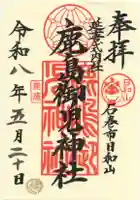 奉拝
石巻市日和山
延喜式内社
鹿島御児神社
令和八年五月二十日